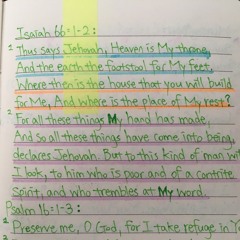 Isaiah 66:1-2:
1 Thus says Jehovah, Heaven is My throne,
And the earth the footstool for My feet,
Where then is the house that you will build
for Me, And where is the place of My rest?
2 For all these things My hand has made,
And so all these things have come into being,
declares Jehovah. But to this kind of man will
I look, to him who is poor and of a contrite
Spirit, and who trembles at My word.
Psalm 16:1-3:
1 Preserve me, O God, for I take refuge in